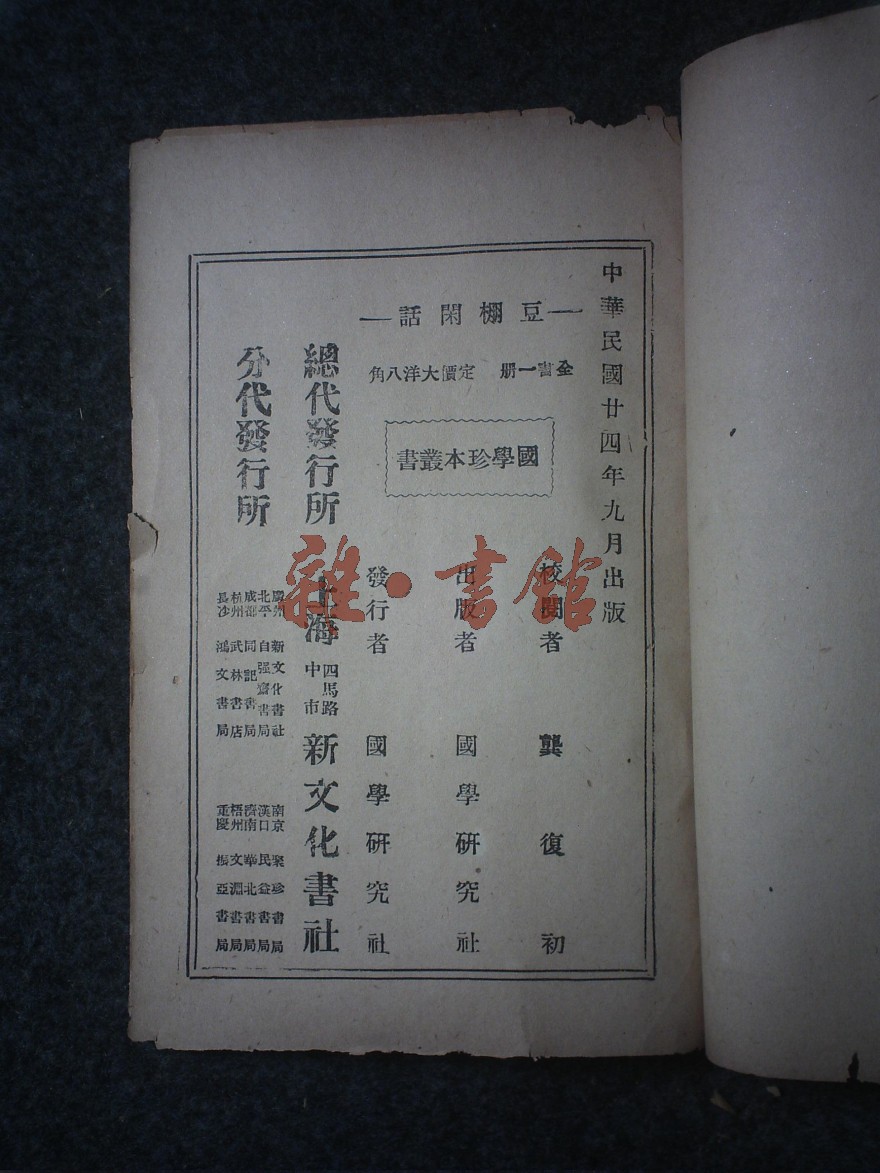 中華民國廿四年九月出版
豆棚閑話
全書一册 定價大洋八角
國學珍本叢書
校閱者 龔復初
出版者 國學研究社
發行者 國學研究社
總代發行所 上海四馬路中市 新文化書社
分代發行所
廣州 新文化書社
北平 自强齋書局
成都 同記書局
杭州 武林書店
長沙 鴻文書局
南京 聚珍書局
漢口 民益書局
濟南 華北書局
梧州 文淵書局
重慶 振亞書局
雜·書館